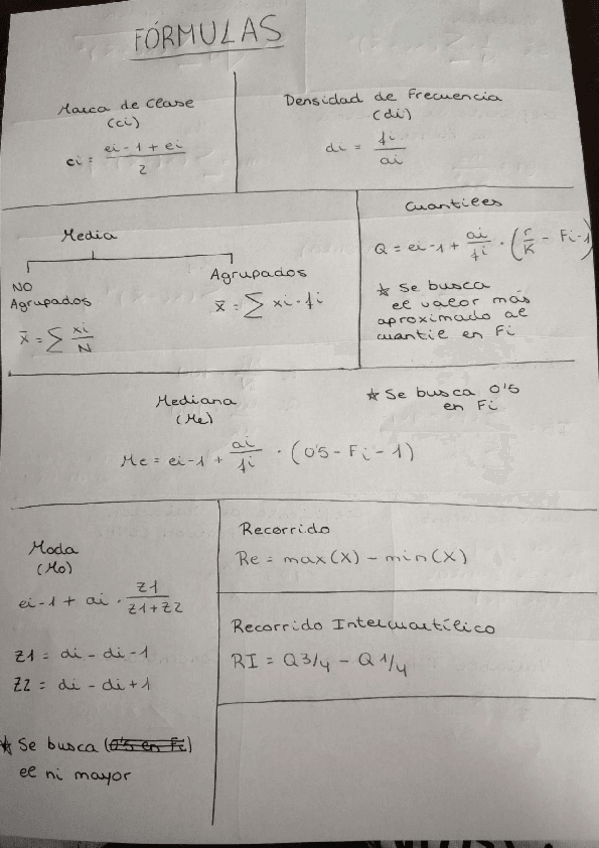 FÓRMULAS
Marca de Clase
(ci)
ci = ei-1 + ei / 2
Densidad de Frecuencia
(di)
di = fi / ai
Media
NO
Agrupados
x̄ = ∑ xi / N
Agrupados
x̄ = ∑ xi · fi
Cuantiles
Q = ei-1 + ai / fi · (r / K - Fi-1)
* Se busca
el valor más
aproximado al
cuantil en Fi
Mediana
(Me)
* Se busca 0'5
en Fi
Me = ei-1 + ai / fi · (0'5 - Fi-1)
Moda
(Mo)
ei-1 + ai · Z1 / Z1+Z2
Z1 = di - di-1
Z2 = di - di+1
* Se busca (0'5 en Fi)
el ni mayor
Recorrido
Re = max(X) - min(X)
Recorrido Intercuartílico
RI = Q3/4 - Q1/4